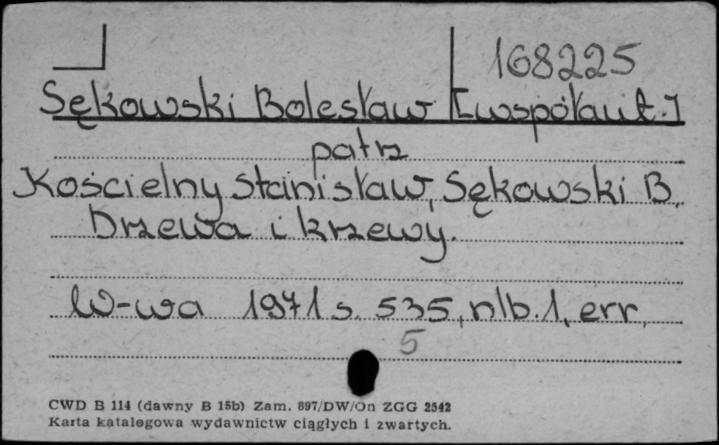 168225
Sękowski Bolesław [współaut.]
patrz
Kościelny Stanisław, Sękowski B.
Drzewa i krzewy.
W-wa 1971 s. 535, nlb. 1, err.
5
CWD B 114 (dawny B 15b) Zam. 897/DW/On ZGG 2542
Karta katalogowa wydawnictw ciągłych i zwartych.